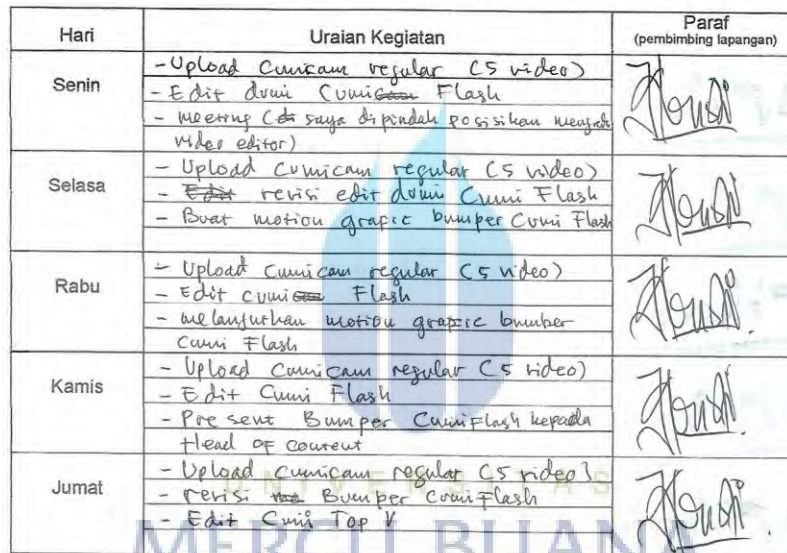 Hari Uraian Kegiatan Paraf
(pembimbing lapangan)
Senin
- Upload Cumicam regular (5 video)
- Edit dumi Cumi Flash
- meeting (saya dipindah posisikan menjadi
video editor)
Selasa
- Upload Cumicam regular (5 video)
- Edit revisi edit dumi Cumi Flash
- Buat motion grafic bumper Cumi Flash
Rabu
- Upload Cumicam regular (5 video)
- Edit cumi Flash
- melanjutkan motion grafic bumber
Cumi Flash
Kamis
- Upload Cumicam regular (5 video)
- Edit Cumi Flash
- Present Bumper Cumi Flash kepada
Head of content
Jumat
- Upload Cumicam regular (5 video)
- revisi Bumper Cumi Flash
- Edit Cumi Top V
UNIVERSITAS
MERCU BUANA